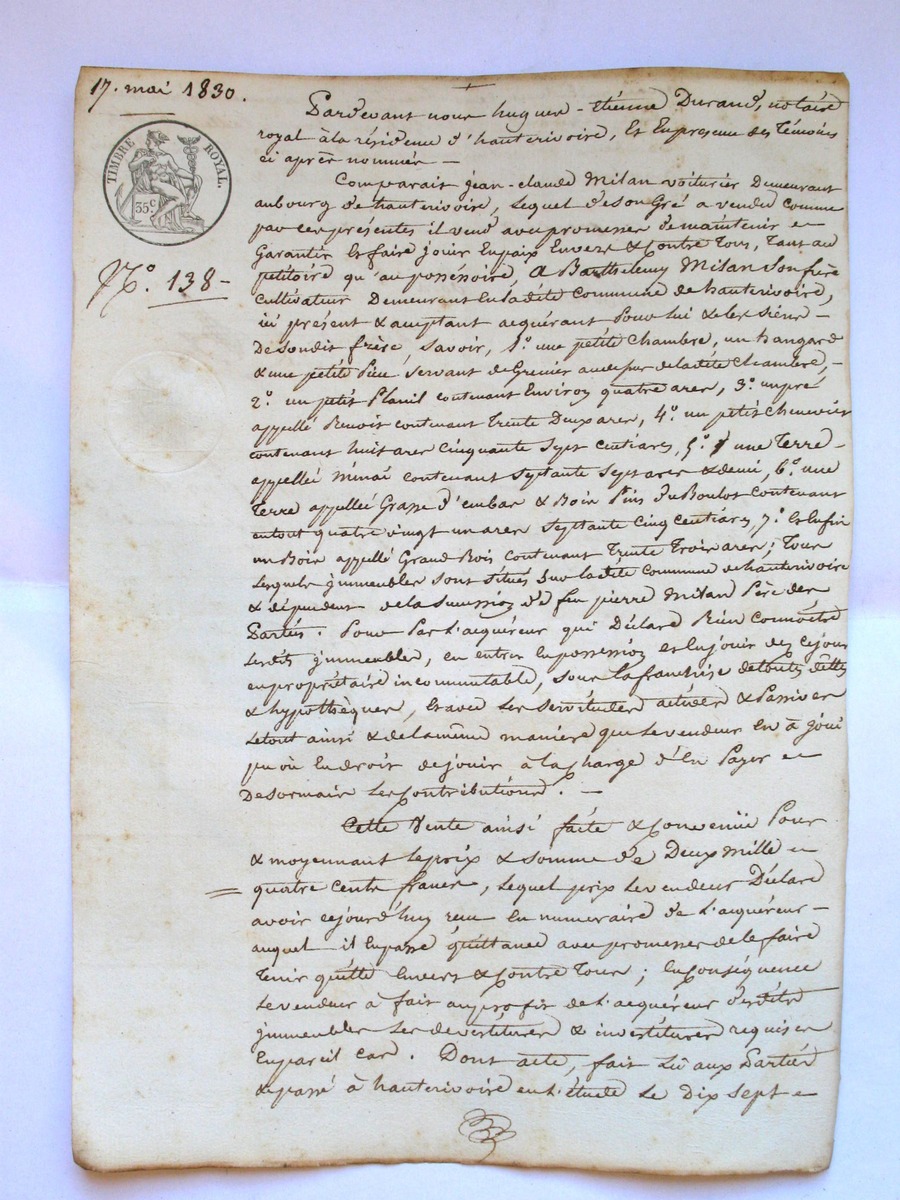 17. mai 1830.
TIMBRE ROYAL.
35c.
N.° 138 -
Pardevant nous hugues-étienne Durand, notaire
royal à la résidence d'hauterivoire, Et En presence des Témoins
ci après nommés —
Comparait jean-claude Milan voiturier Demeurant
au bourg de hauterivoire, Lequel de son Gré a vendu comme
par ces présentes il vend avec promesses de maintenir et
Garantir Et faire jouir En paix Envers & Contre Tous, Tant au
petitoire qu'au possessoire, A Barthelemy Milan Son frère
cultivateur Demeurant En la dite Commune de hauterivoire,
ici présent & acceptant acquérant Pour lui & les siens -
De son dit frère, Savoir, 1.° une petite Chambre, un hangard
& une petite Piece servant de Grenier au dessus de la dite Chambre, -
2.° un petit Planil contenant Environ quatre ares, 3.° un pré
appellé Benoit contenant Trente Deux ares, 4.° un petit Chenevier
contenant huit ares Cinquante Sept Centiares, 5.° une Terre -
appellée Minai contenant Septante Sept ares & demi, 6.° une
Terre appellée Grasse d'embas & Bois Pins du Boulot Contenant
en tout quatre vingt un ares Septante Cinq Centiares, 7.° Et Enfin
un Bois appellé Grand Bois contenant Trente Trois ares; Tous
Lesquels jmmeubles sont Situés Sur la dite Commune de hauterivoire
& dépendent de la Succession de feu pierre Milan Père des
Parties. Pour Par L'acquéreur qui Déclare Bien Connoître
Lesdits jmmeubles, en entrer En possession et En jouir dez Ce jour
en propriétaire incommutable, sous La franchise de toutes dettes
& hypothèques, Et avec Les Servitudes actives & Passives
Le tout ainsi & de la même manière que Le vendeur En à joui
pu ou En droit de jouir à La Charge d'En Payer et
Desormais Les Contributions. —
Cette Vente ainsi faite & Convenue Pour
& moyennant Le prix & Somme de Deux Mille et
quatre Cents francs, Lequel prix Le vendeur Déclare
avoir Cejourd'huy reçu En numeraire de L'acquéreur -
auquel il En passe quittance avec promesses de le faire
Tenir quitte Envers & Contre Tous; En Conséquence
Le vendeur à fait au profit de L'acquéreur desdits
jmmeubles Les devestitures & investitures requises
En pareil Cas. Dont acte, fait Lû aux Parties
& passé à hauterivoire en L'étude Le Dix Sept